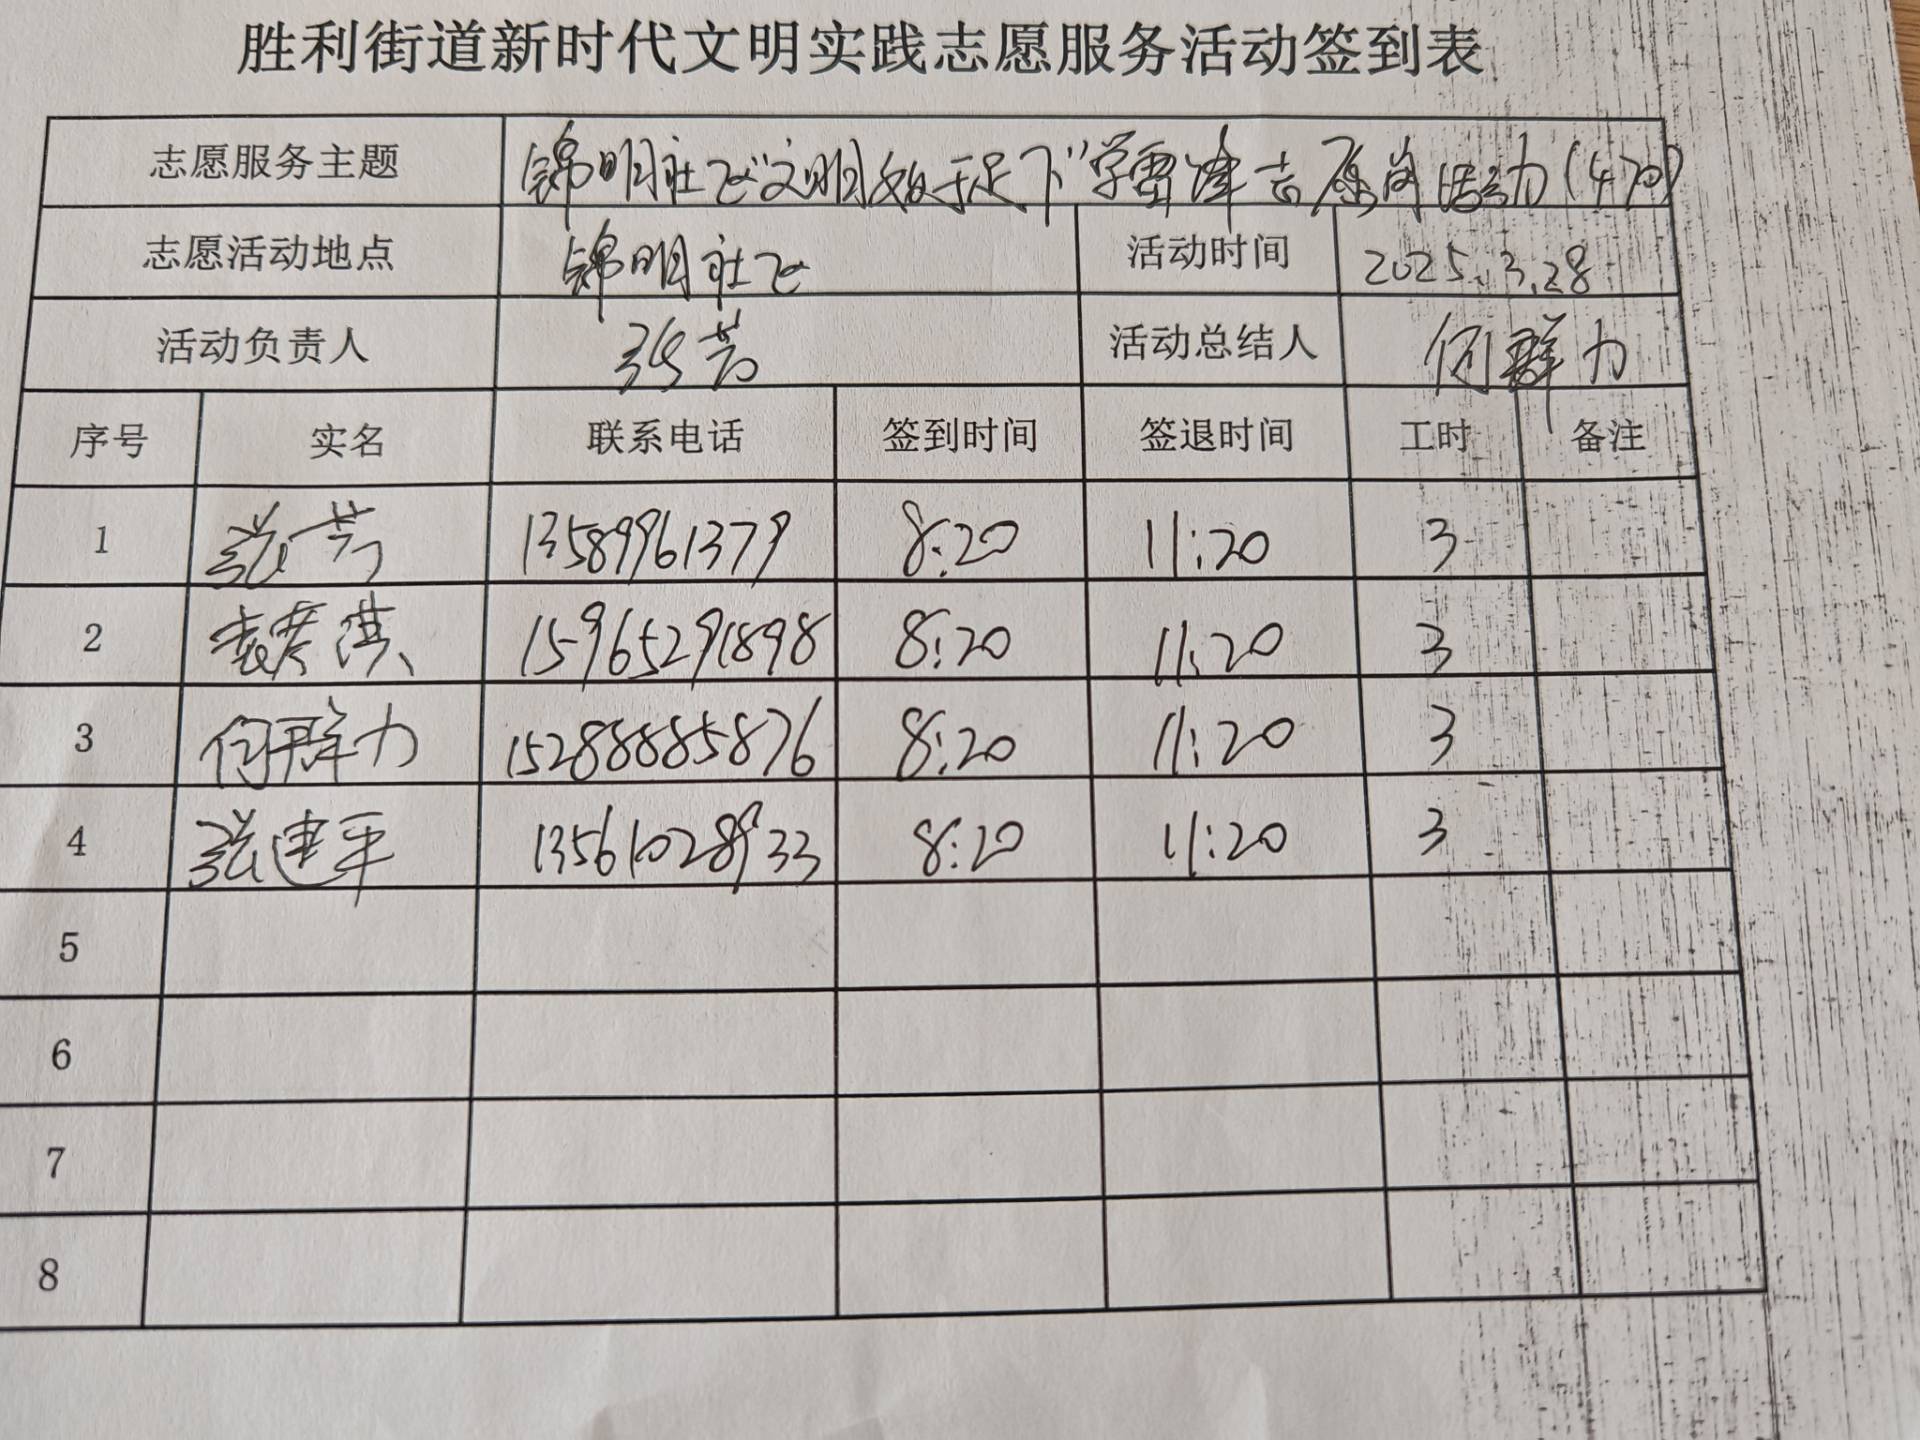 胜利街道新时代文明实践志愿服务活动签到表
志愿服务主题 锦明社区“文明始于足下”学雷锋志愿岗活动(470)
志愿活动地点 锦明社区 活动时间 2025.3.28
活动负责人 张芳 活动总结人 何群力
序号 实名 联系电话 签到时间 签退时间 工时 备注
1 张芳 13589961379 8:20 11:20 3
2 洪 15965291898 8:20 11:20 3
3 何群力 15288885876 8:20 11:20 3
4 张建平 13561028933 8:20 11:20 3
5
6
7
8